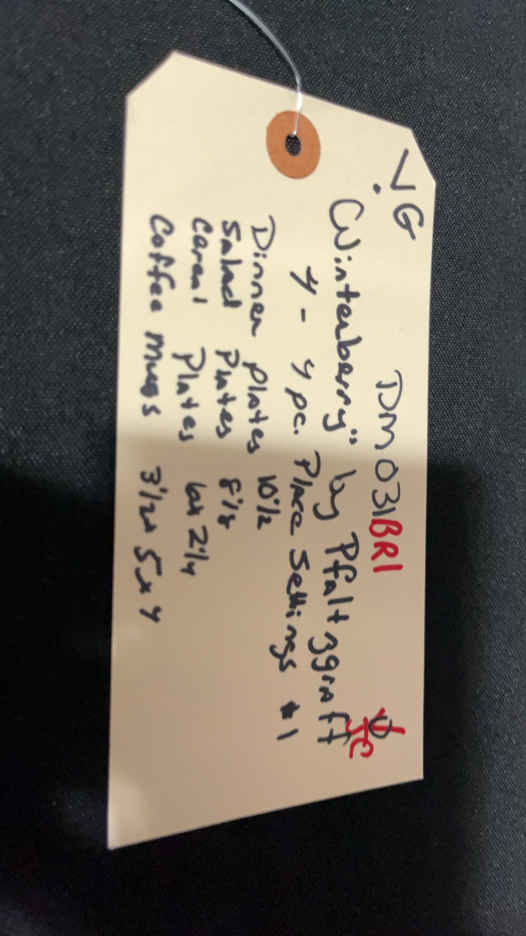 VG DM031BRI
Winterberry" by Pfaltzgraff
4 - 4 pc. Place Settings #1
Dinner plates 10 1/2
Salad Plates 8 1/8
Cereal Plates 6x 2 1/4
Coffee Mugs 3 1/2x 5x4